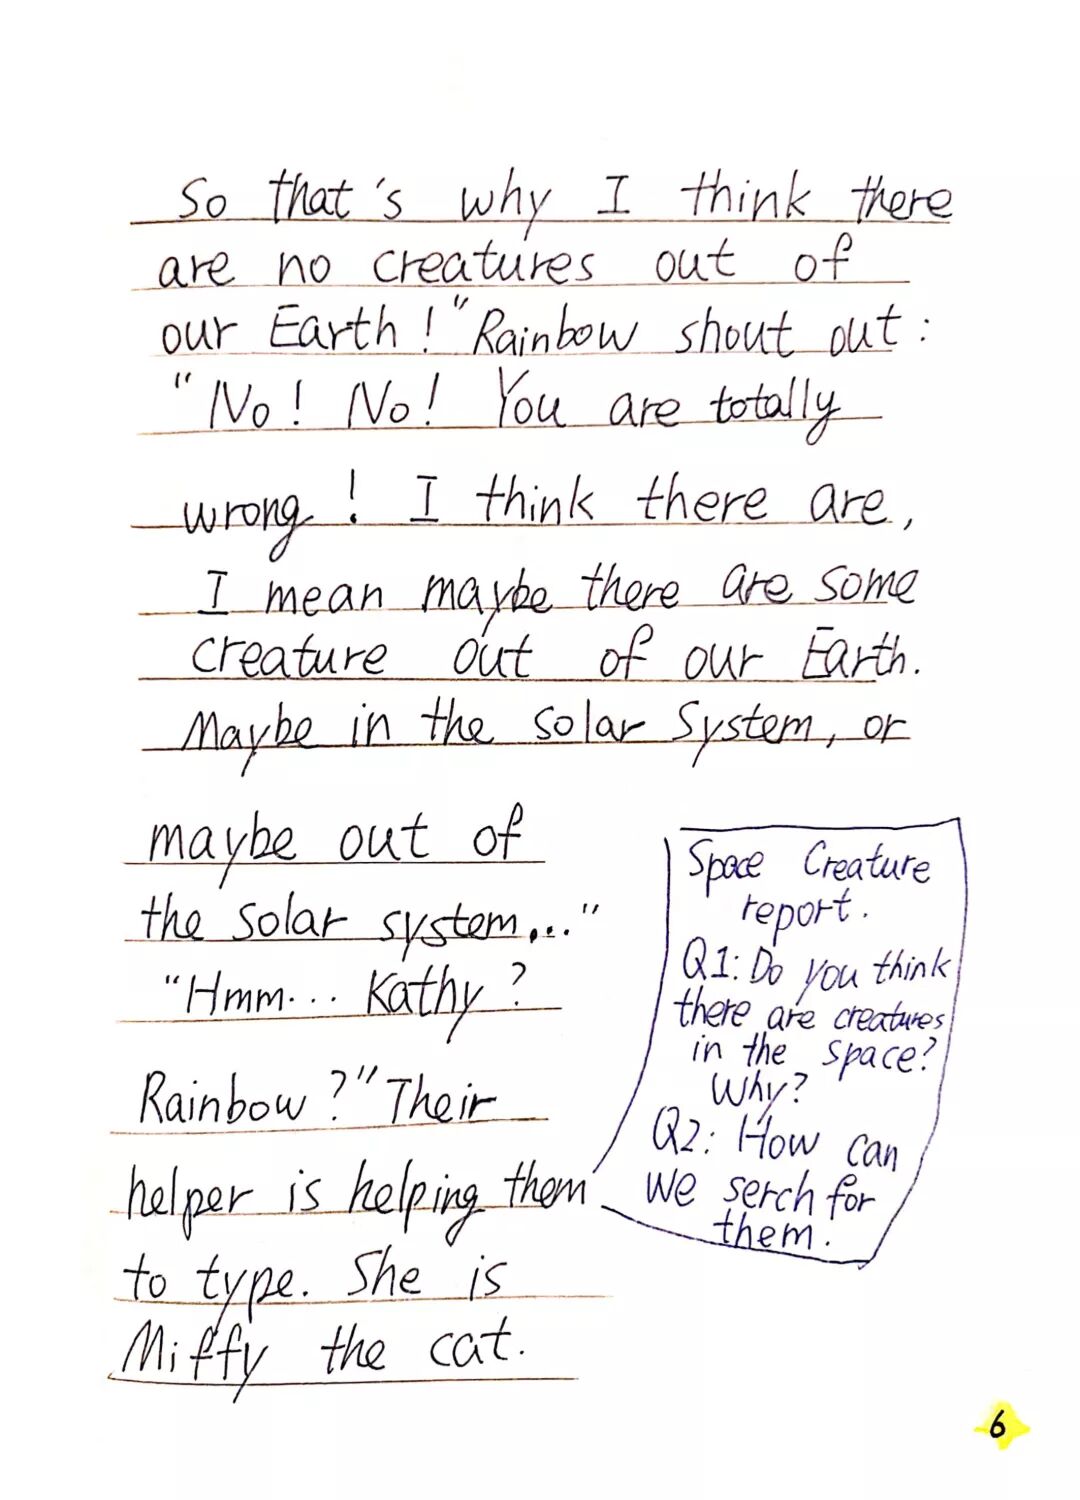 So that's why I think there
are no creatures out of
our Earth!" Rainbow shout out:
"No! No! You are totally
wrong! I think there are,
I mean maybe there are some
creature out of our Earth.
Maybe in the solar system, or
maybe out of
the solar system..."
"Hmm... Kathy?
Rainbow?" Their
helper is helping them
to type. She is
Miffy the cat.
Space Creature
report.
Q1: Do you think
there are creatures
in the space?
Why?
Q2: How can
we serch for
them.
6